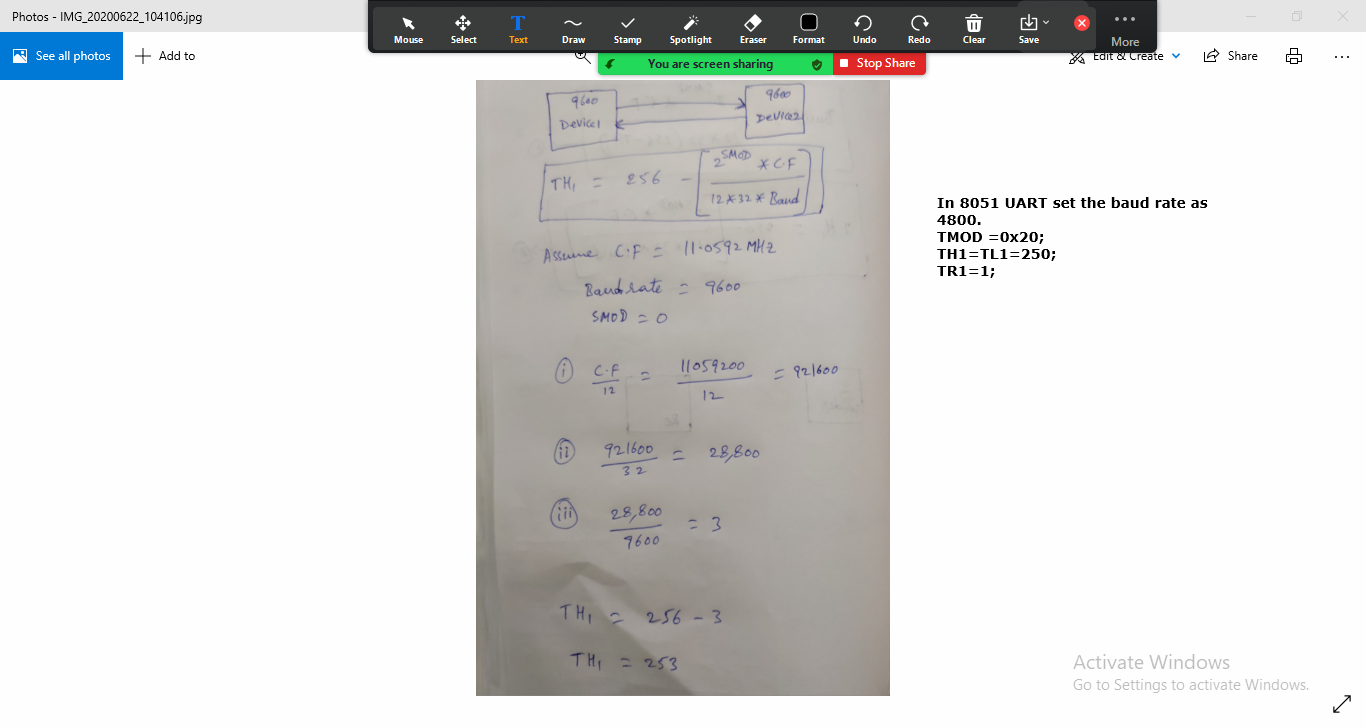 Photos - IMG_20200622_104106.jpg
Mouse Select Text Draw Stamp Spotlight Eraser Format Undo Redo Clear Save More
See all photos
Add to
You are screen sharing
Stop Share
Edit & Create
Share
9600
Device1
9600
Device2
TH1 = 256 - [2^SMOD * C.F / 12*32* Baud]
Assume C.F = 11.0592 MHz
Baud rate = 9600
SMOD = 0
(i) C.F / 12 = 11059200 / 12 = 921600
(ii) 921600 / 32 = 28,800
(iii) 28,800 / 9600 = 3
TH1 = 256 - 3
TH1 = 253
In 8051 UART set the baud rate as
4800.
TMOD =0x20;
TH1=TL1=250;
TR1=1;
Activate Windows
Go to Settings to activate Windows.